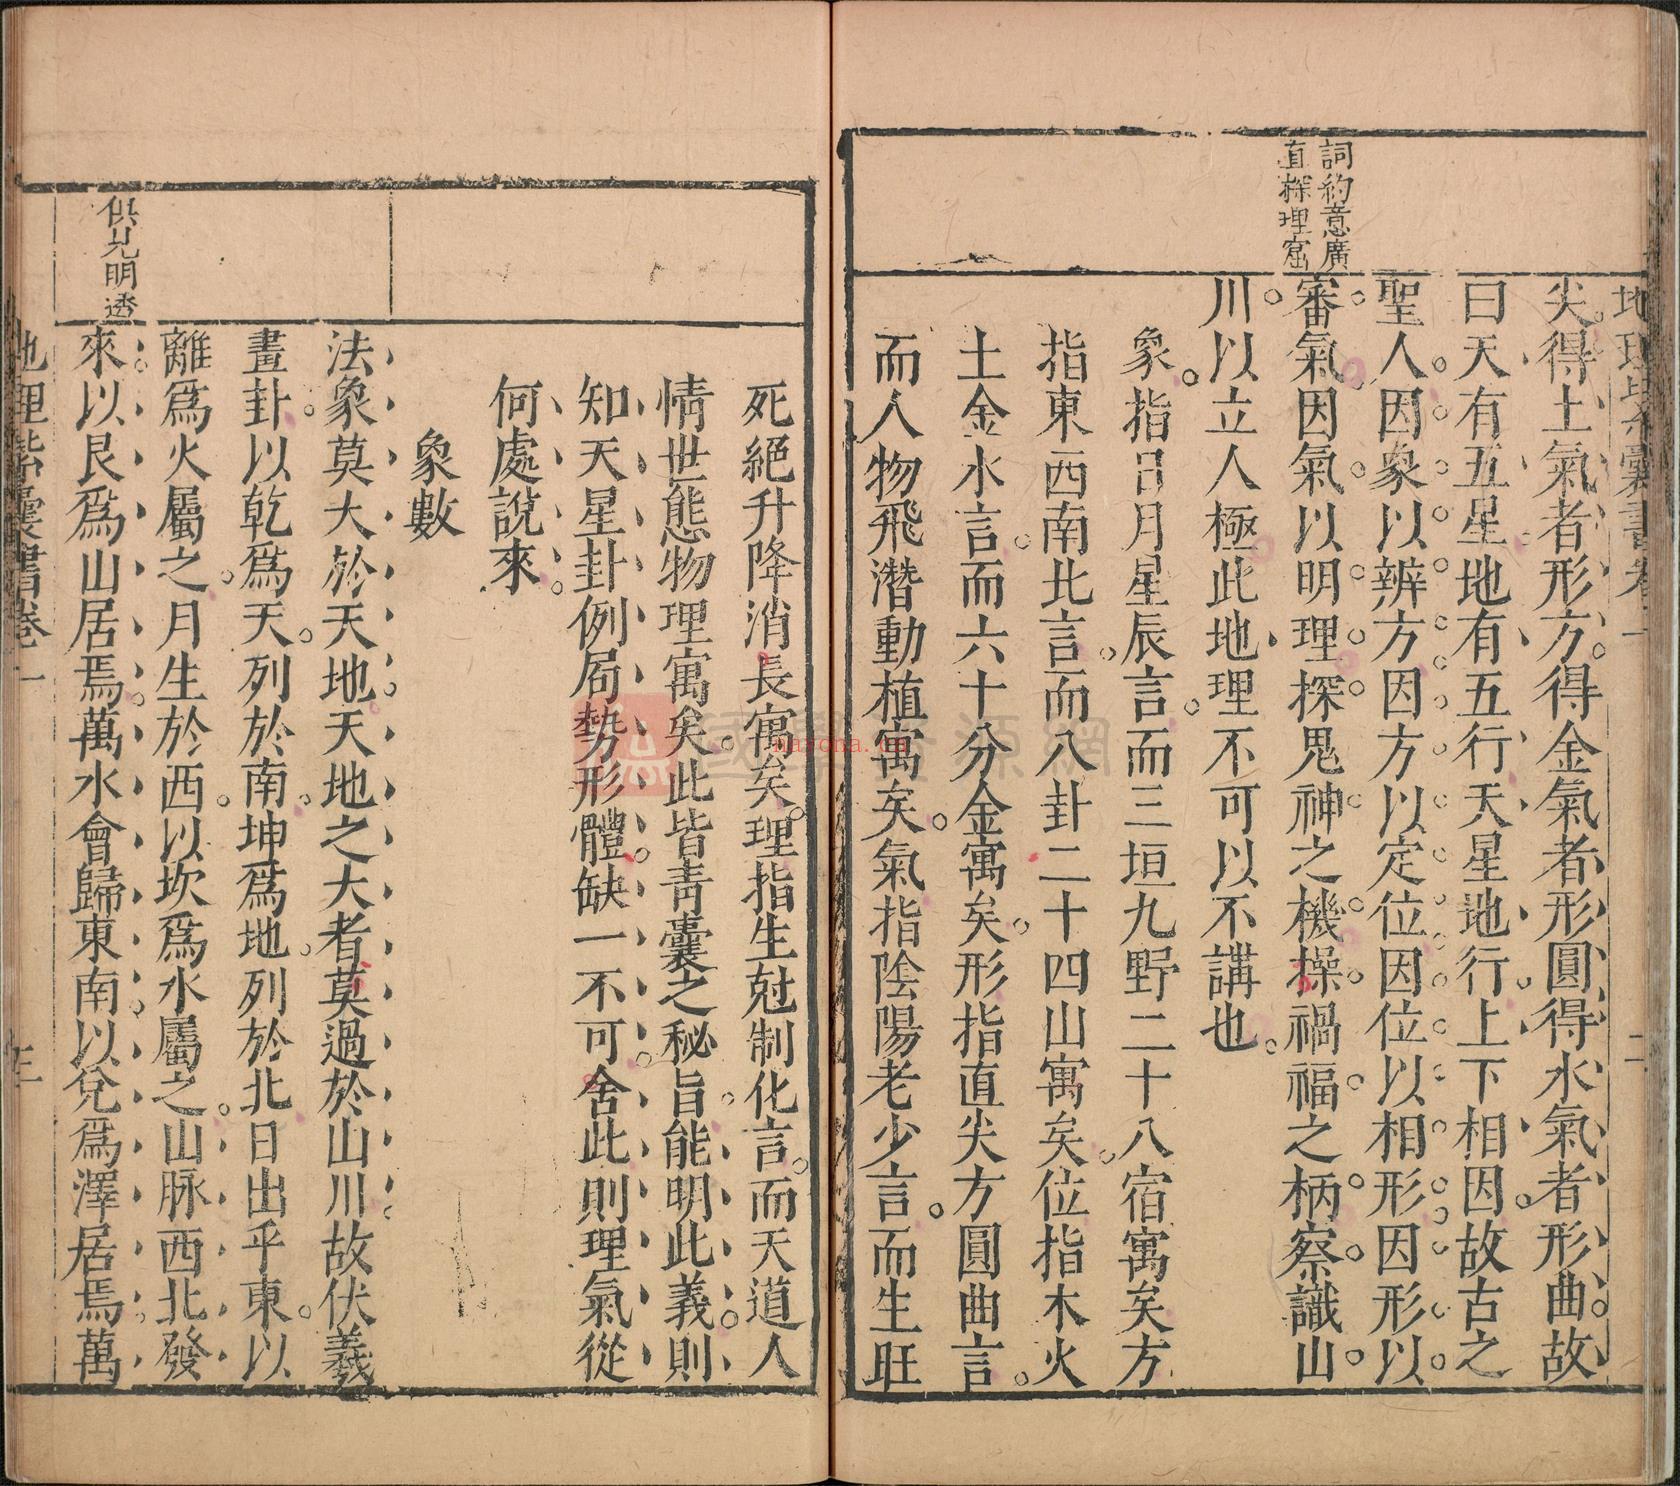 詞約意廣
直探理窟
尖得土氣者形方得金氣者形圓得水氣者形曲故
曰天有五星地有五行天星地行上下相因故古之
聖人因象以辨方因方以定位因位以相形因形以
審氣因氣以明理探鬼神之機操禍福之柄察識山
川以立人極此地理不可以不講也
象指日月星辰言而三垣九野二十八宿寓矣方
指東西南北言而八卦二十四山寓矣位指木火
土金水言而六十分金寓矣形指直尖方圓曲言
而人物飛潛動植寓矣氣指陰陽老少言而生旺
死絕升降消長寓矣理指生尅制化言而天道人
情世態物理寓矣此皆青囊之秘旨能明此義則
知天星卦例局勢形體缺一不可舍此則理氣從
何處說來
象數
法象莫大於天地天地之大者莫過於山川故伏羲
畫卦以乾爲天列於南坤爲地列於北日出乎東以
離爲火屬之月生於西以坎爲水屬之山脉西北發
來以艮爲山居焉萬水會歸東南以兌爲澤居焉萬
明透
地理紫囊書卷一
三
國學資源網
nayona.cn